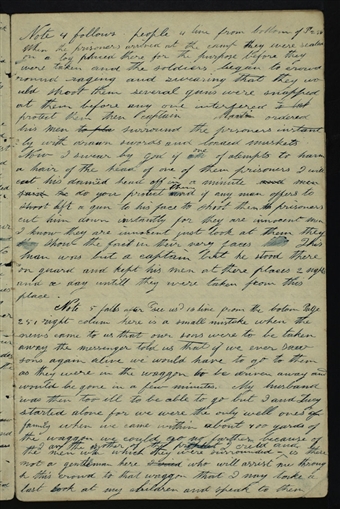 Note 4 follows people 4 line from bottom of Page
When the prisoners arrived at the camp they were seated
on a log placed there for the purpose before they
were taken and the soldiers began to crowd
round raging and swearing that they wo
uld shoot them several guns were snapped
at them before any one interfered to
protect them then Captain ordered
his men surround the prisoners instant
ly with drawn swords and loaded muskets
Now I swear by god if one of attempts to harm
a hair of the head of one of them prisoners I will
cut his damned head off in a minute men
do your and if any man offers to
shoot left a gun to his face to shoot them prisoners
cut him down instantly for they are inocent men
I know they are inocent just look at them they
show the fact in their very faces This
man was but a captain but he stood there
on guard and kept his men at there places 2 nights
and a day until they were taken from this
place
Note 5 follows after see us 10 line from the bottom Page
251 right column here is a small mistake when the
news came to us that our sons were to be taken
away the messenger told us that if we ever saw our
sons again alive we would have to go to them
as they were in the waggon to be driven away and
would be gone in a few minutes. My husband
was then too ill to be able to go but I and Lucy
started alone for we were the only well ones of
family when we came within about 100 yards of
the waggon we could go no farther because of
the men with which they were surrounded
I am the mother of the prophet I cried and is there
not a gentleman here who will assist me throug
h this crowd to that waggon that I may take a
last look at my children and speak to them